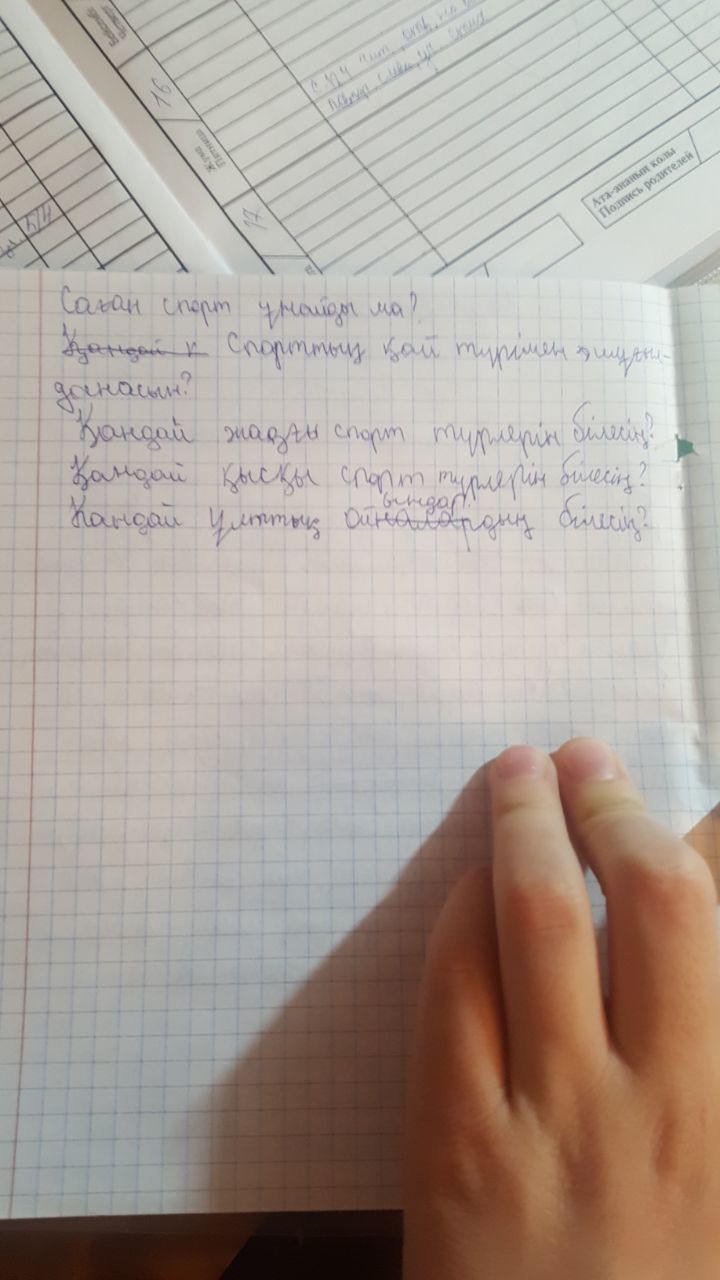 Бейсенбі
Четверг
16
Жұма
Пятница
17
Ата-ананың қолы
Подпись родителей
Саған спорт ұнайды ма?
Қандай к Спорттың қай түрімен шұғыл-
данасың?
Қандай жазғы спорт түрлерін білесің?
Қандай қысқы спорт түрлерін білесің?
ындар
Қандай ұлттық ойналардың білесің?